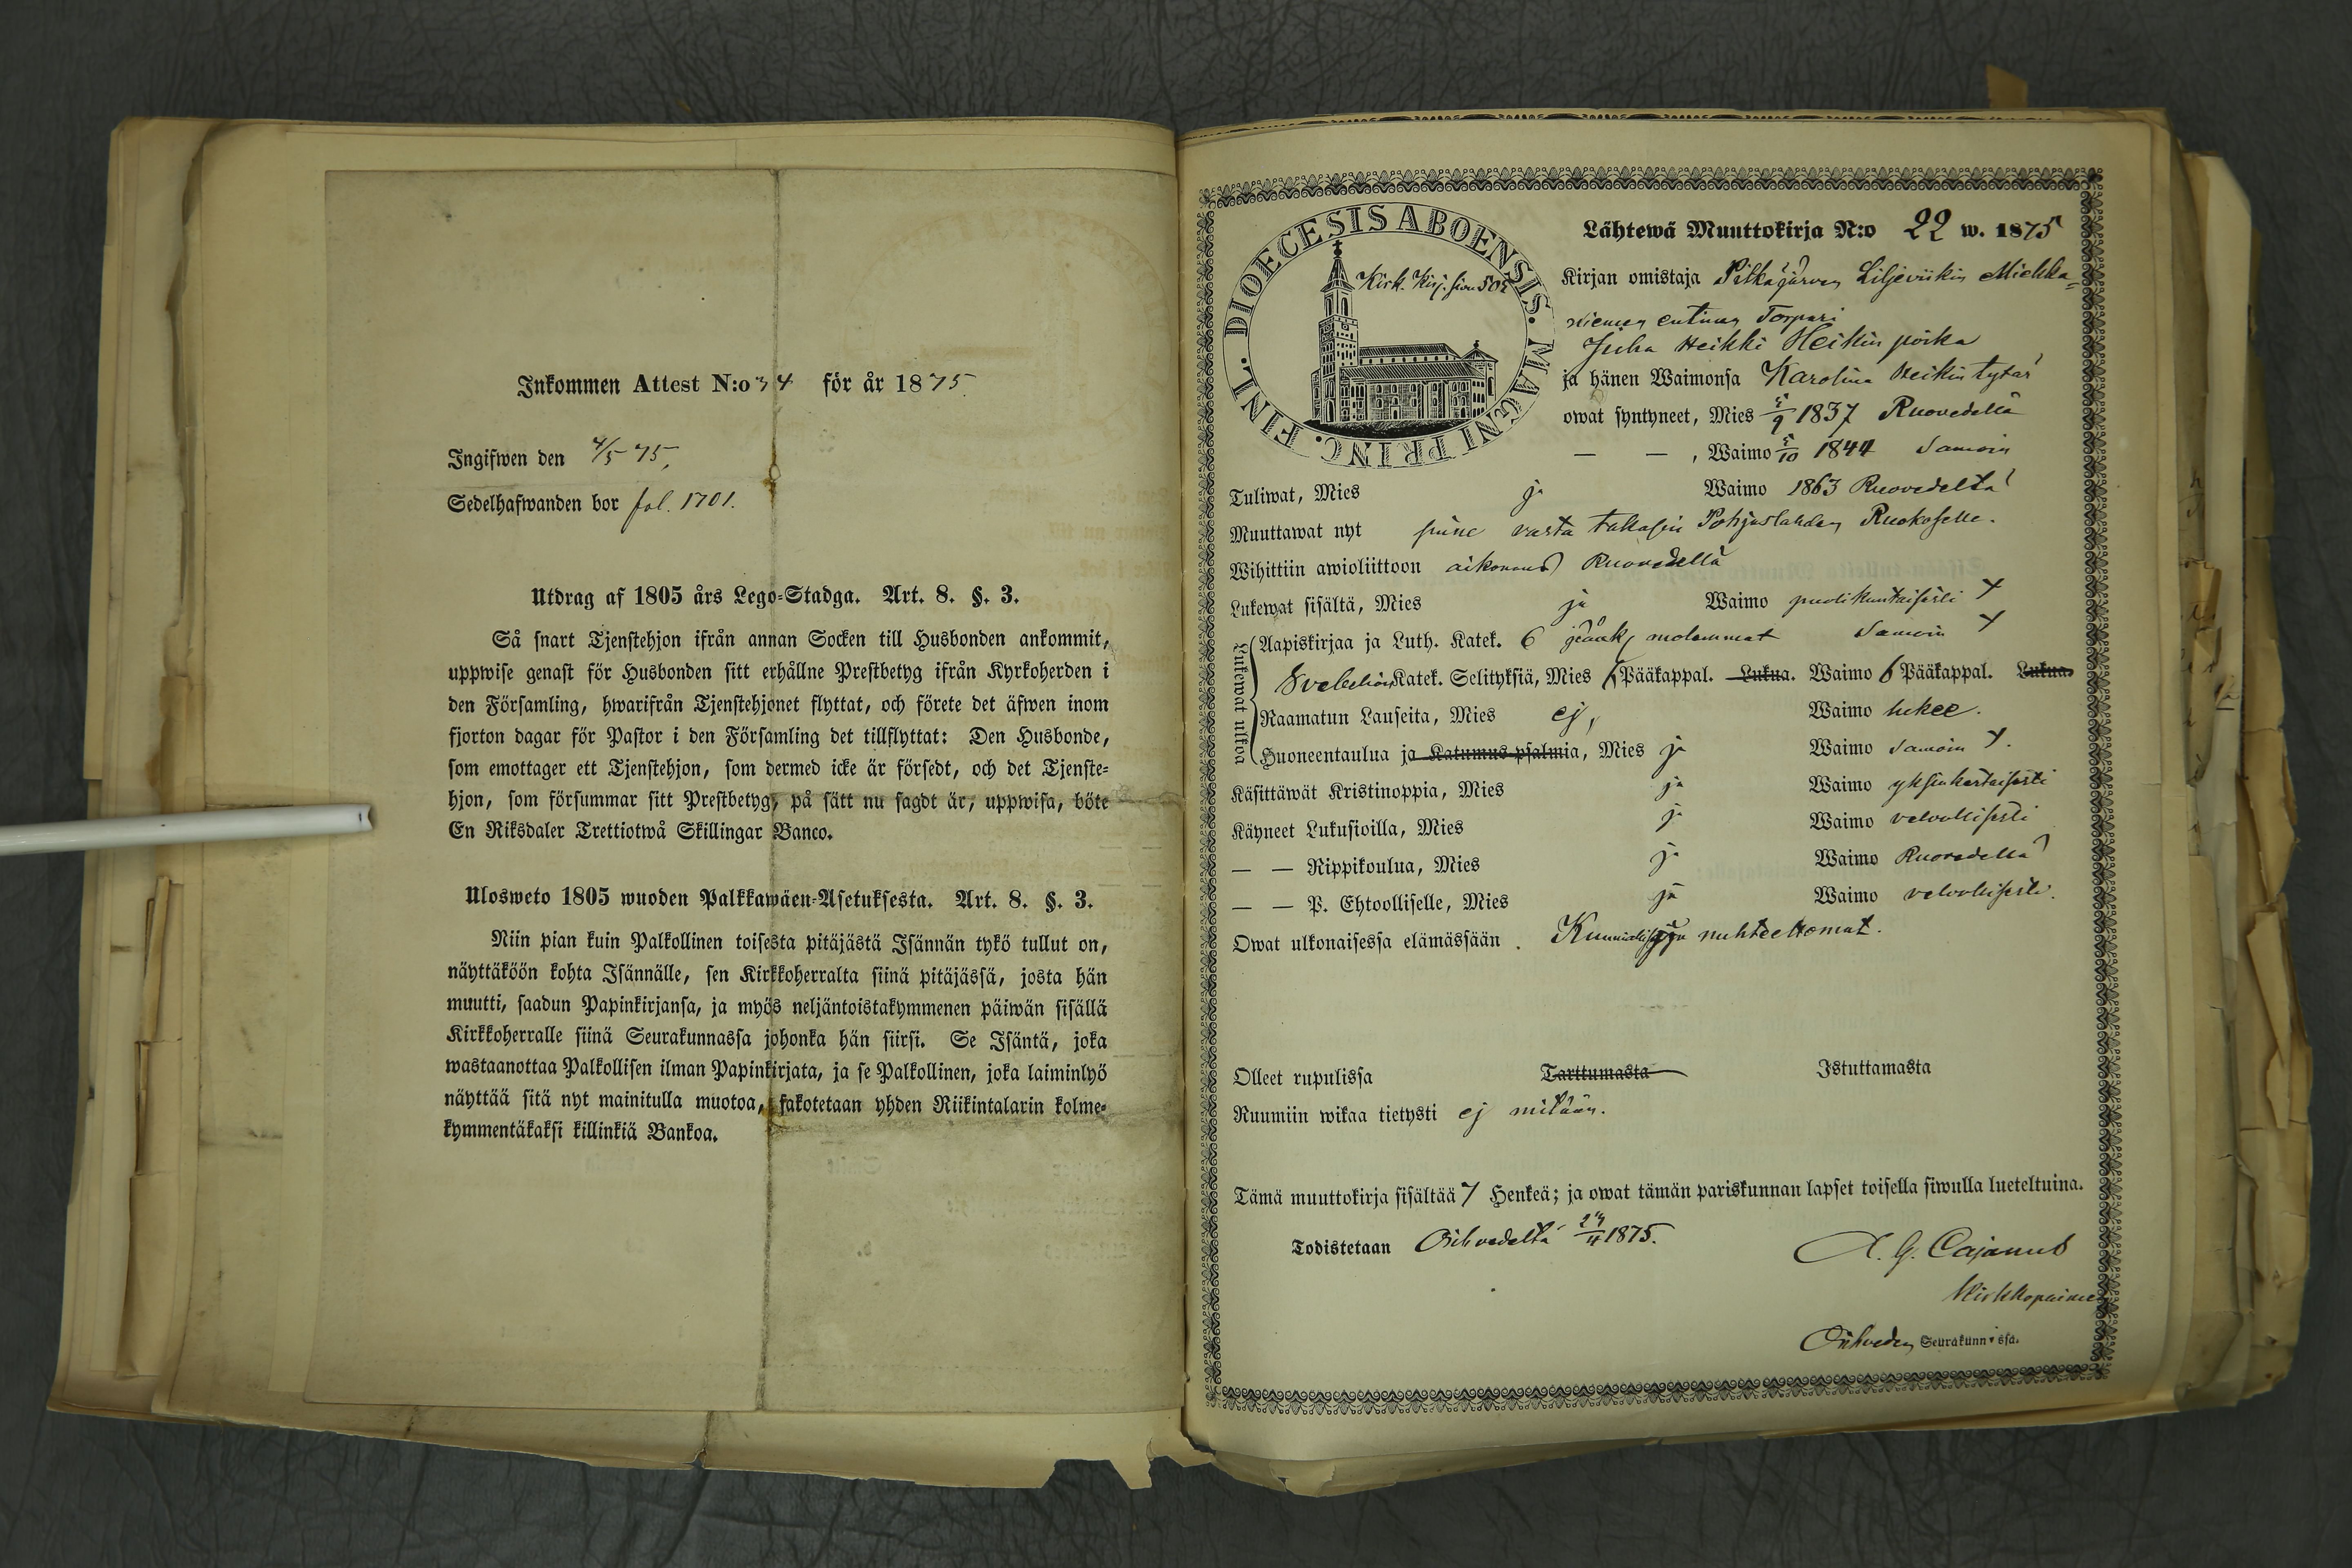 Inkommen Attest N:o 34 för år 1875.
Ingifwen den 4/5 75,
Sedelhafwanden bor fol. 1701.
Utdrag af 1805 års Lego-Stadga. Art. 8. §. 3.
Så snart Tjenstehjon ifrån annan Socken till Husbonden ankommit,
uppwise genast för Husbonden sitt erhållne Prestbetyg ifrån Kyrkoherden i
den Församling, hwarifrån Tjenstehjonet flyttat, och förete det äfwen inom
fjorton dagar för Pastor i den Församling det tillflyttat: Den Husbonde,
som emottager ett Tjenstehjon, som dermed icke är försedt, och det Tjenste-
hjon, som försummar sitt Prestbetyg, på sätt nu sagdt är, uppwisa, böte
En Riksdaler Trettiotwå Skillingar Banco.
Ulosweto 1805 wuoden Palkkawäen-Asetuksesta. Art. 8. §. 3.
Niin pian kuin Palkollinen toisesta pitäjästä Isännän tykö tullut on,
näyttäköön kohta Isännälle, sen Kirkkoherralta siinä pitäjässä, josta hän
muutti, saadun Papinkirjansa, ja myös neljäntoistakymmenen päiwän sisällä
Kirkkoherralle siinä Seurakunnassa johonka hän siirsi. Se Isäntä, joka
wastaanottaa Palkollisen ilman Papinkirjata, ja se Palkollinen, joka laiminlyö
näyttää sitä nyt mainitulla muotoa, sakotetaan yhden Riikintalarin kolme-
kymmentäkaksi killinkiä Bankoa.
DIOECESIS ABOENSIS. MAGNI PRINC. FINL.
Kirk. Kirj. sivu 502
Lähtewä Muuttokirja N:o 22 w. 1875
Kirjan omistaja Pitkäjärven Liljeviikin Miekka=
niemen entinen Torpari
Juha Heikki Heikin poika
ja hänen Waimonsa Karolina Heikin tytär
owat syntyneet, Mies 5/9 1837 Ruovedellä
— — , Waimo 5/10 1844 Samoin
Tuliwat, Mies ja Waimo 1863 Ruovedeltä
Muuttawat nyt sinne vasta takasin Pohjaslahden Ruokoselle.
Wihittiin awioliittoon aikonaus Ruovedellä
Lukewat sisältä, Mies ja Waimo puolikuntaisesti +
Lukewat ulkoa
Aapiskirjaa ja Luth. Katek. 6 pääk, molemmat Samoin +
Svebelion Katek. Selityksiä, Mies 6 Pääkappal. Lukua. Waimo 6 Pääkappal. Lukua.
Raamatun Lauseita, Mies ej, Waimo lukee.
Huoneentaulua ja Katumus-psalmia, Mies ja Waimo samoin +.
Käsittäwät Kristinoppia, Mies ja Waimo yksinkertaisesti
Käyneet Lukusioilla, Mies ja Waimo velvollisesti
— — Rippikoulua, Mies ja Waimo Ruovedellä
— — P. Ehtoolliselle, Mies ja Waimo velvollisesti.
Owat ulkonaisessa elämässään . ja nuhteettomat.
Olleet rupulissa Tarttumasta Istuttamasta
Ruumiin wikaa tietysti ej mitään.
Tämä muuttokirja sisältää 7 Henkeä; ja owat tämän pariskunnan lapset toisella siwulla lueteltuina.
Todistetaan 1875.
A. G. Cajanus
Kirkkopaimen
Seurakunnassa.